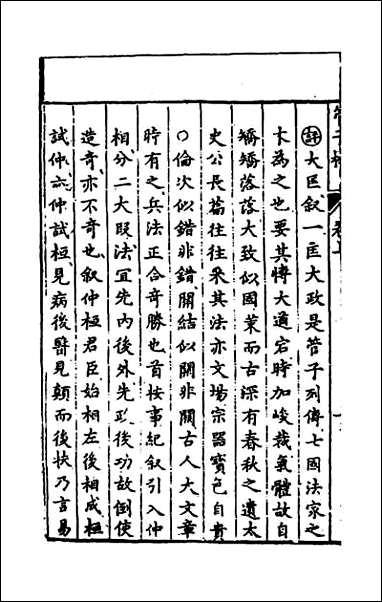 評大匡叙一匡大政是管子列傳七國法家之
卞為之也要其博大通宕時加峻裁氣體故自
矯矯落落大致似國策而古深有春秋之遺太
史公長篇往往采其法亦文場宗器寳色自貴
○倫次似錯非錯關結似關非關古人大文章
時有之兵法正合奇勝也首按事紀叙引入仲
相分二大段法冝先内後外先政後功故倒使
造奇亦不奇也叙仲桓君臣始相左後相成桓
試仲亦仲試桓見病後醫見顛而後扶乃言易